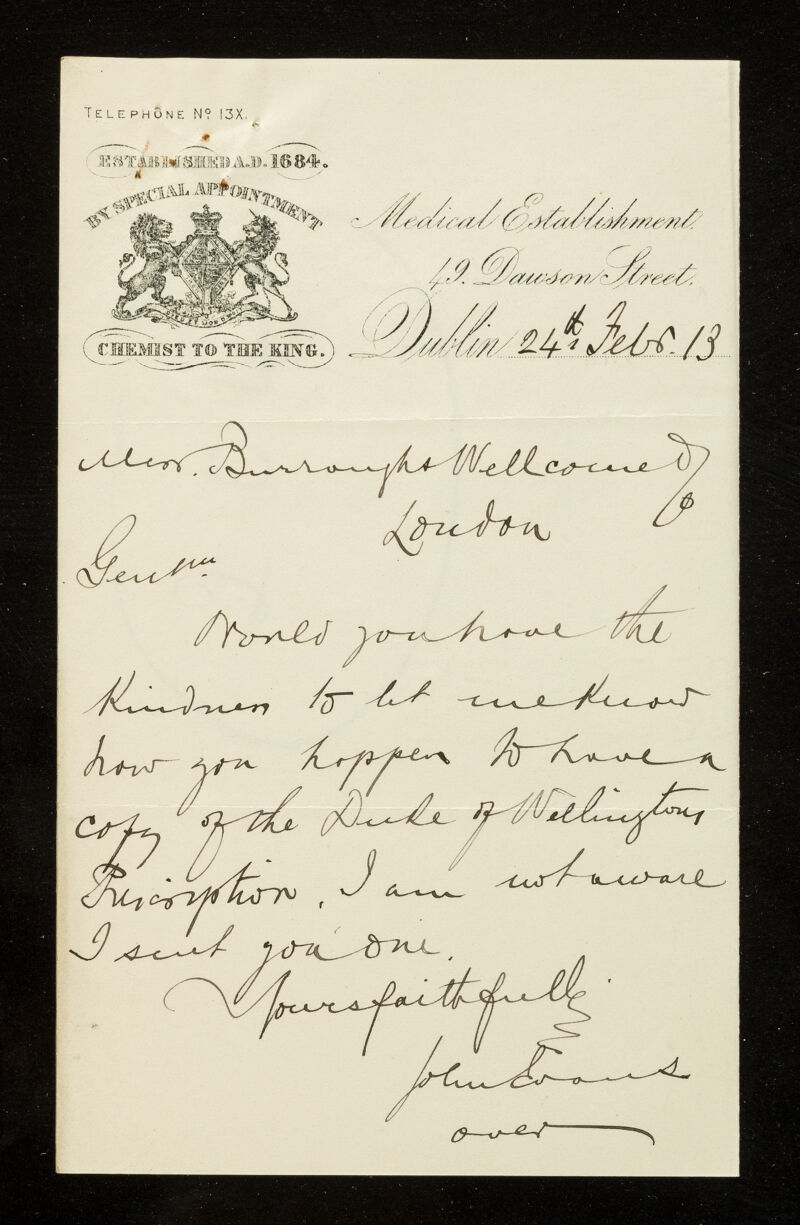 TELEPHONE Nº 13X.
ESTABLISHED A.D. 1684.
BY SPECIAL APPOINTMENT
DIEU ET MON DROIT
CHEMIST TO THE KING.
Medical Establishment.
49. Dawson Street.
Dublin 24th Febr. 13
Messrs. Burroughs Wellcome &
Co
London
Gentmn
Would you have the
Kindness to let me Know
how you happen to have a
copy of the Duke of Wellingtons
Prescription. I am not aware
I sent you one.
Yours faithfully
John Evans
over